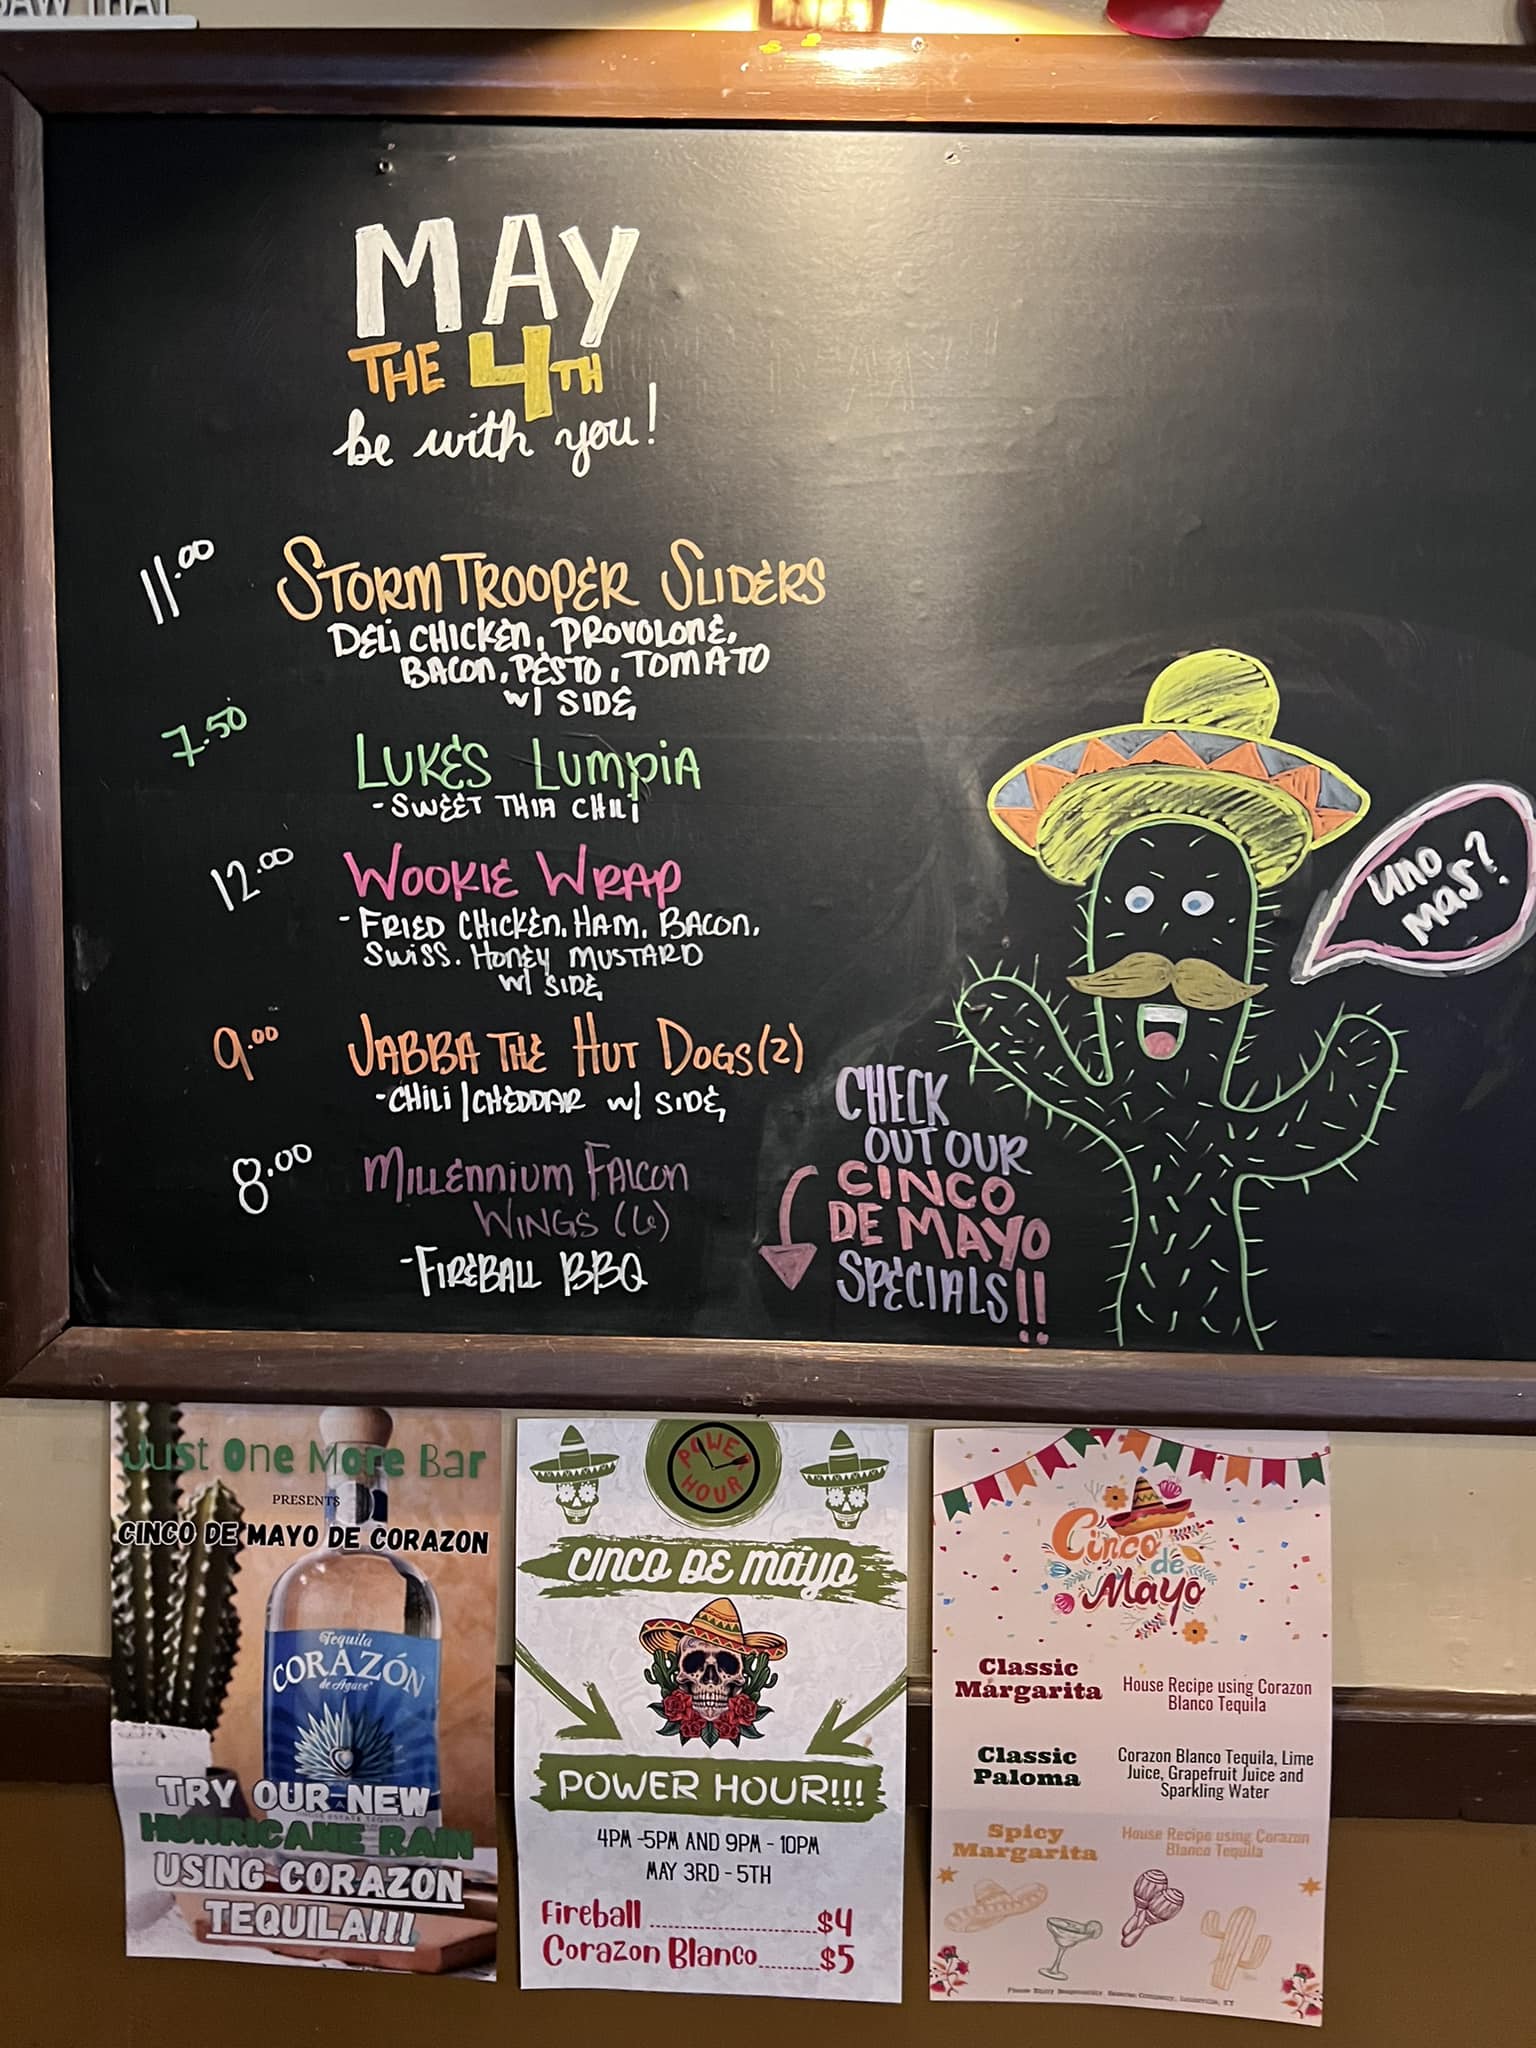 MAY
THE 4TH
be with you!
11.00 STORMTROOPER SLIDERS
DELI CHICKEN, PROVOLONE,
BACON, PESTO, TOMATO
W/ SIDE
7.50 LUKES LUMPIA
- SWEET THIA CHILI
12.00 WOOKIE WRAP
- FRIED CHICKEN, HAM, BACON,
SWISS. HONEY MUSTARD
W/ SIDE
9.00 JABBA THE HUT DOGS (2)
- CHILI / CHEDDAR W/ SIDE
8.00 MILLENNIUM FALCON
WINGS (6)
- FIREBALL BBQ
UNO
MAS?
CHECK
OUT OUR
CINCO
DE MAYO
SPECIALS!!
Just One More Bar
PRESENTS
CINCO DE MAYO DE CORAZON
Tequila
CORAZÓN
de Agave
TRY OUR NEW
HURRICANE RAIN
USING CORAZON
TEQUILA!!!
POWER
HOUR
CINCO DE MAYO
POWER HOUR!!!
4PM -5PM AND 9PM - 10PM
MAY 3RD - 5TH
Fireball ........................$4
Corazon Blanco.........$5
Cinco
de
Mayo
Classic
Margarita
House Recipe using Corazon
Blanco Tequila
Classic
Paloma
Corazon Blanco Tequila, Lime
Juice, Grapefruit Juice and
Sparkling Water
Spicy
Margarita
House Recipe using Corazon
Blanco Tequila